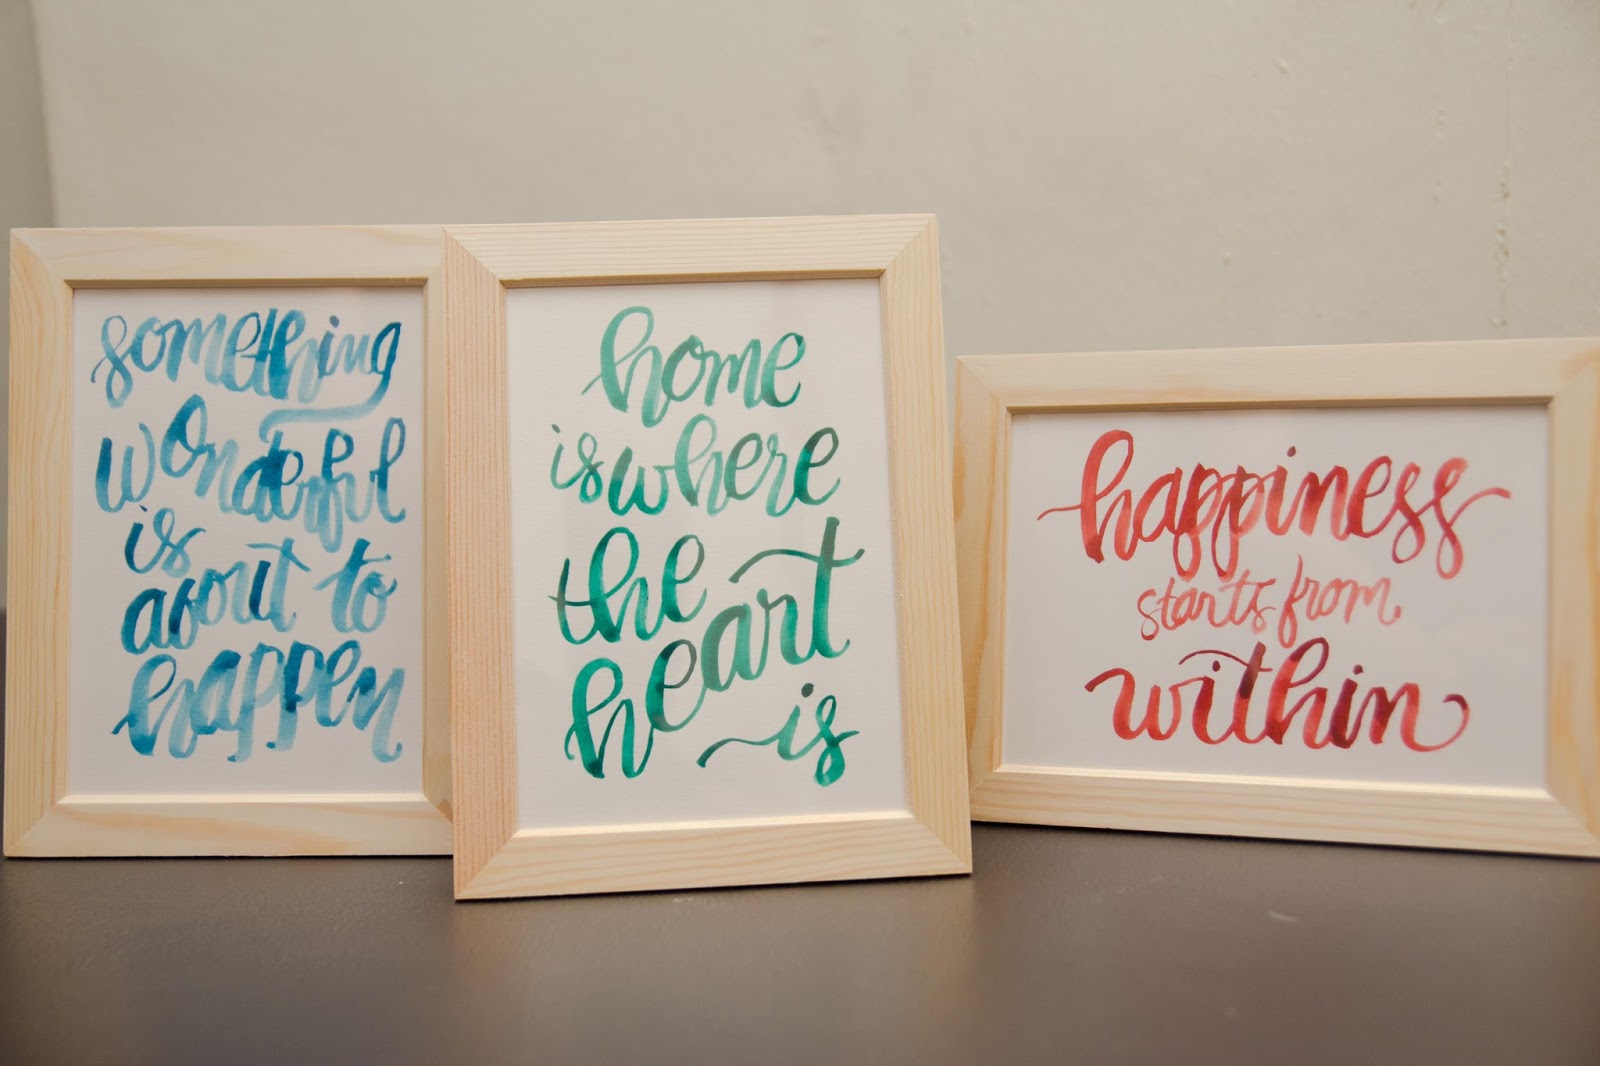 something
wonderful
is
about to
happen
home
is where
the
heart
is
happiness
starts from
within